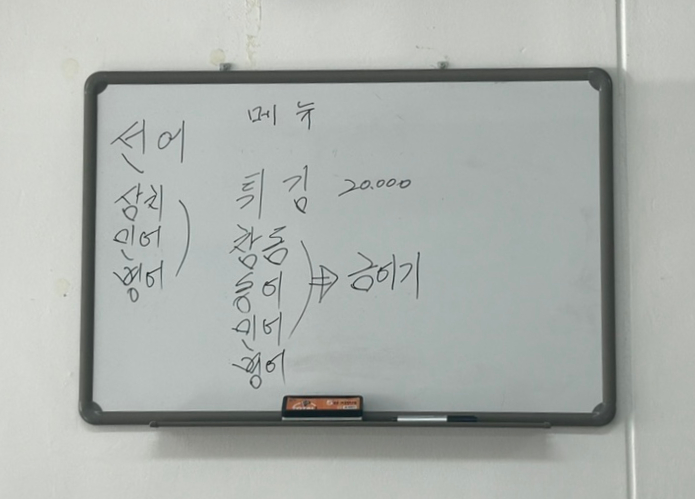 메뉴
선어
삼치
민어
병어
튀김 20.000
참돔
농어
민어
병어
⇒ 금어기